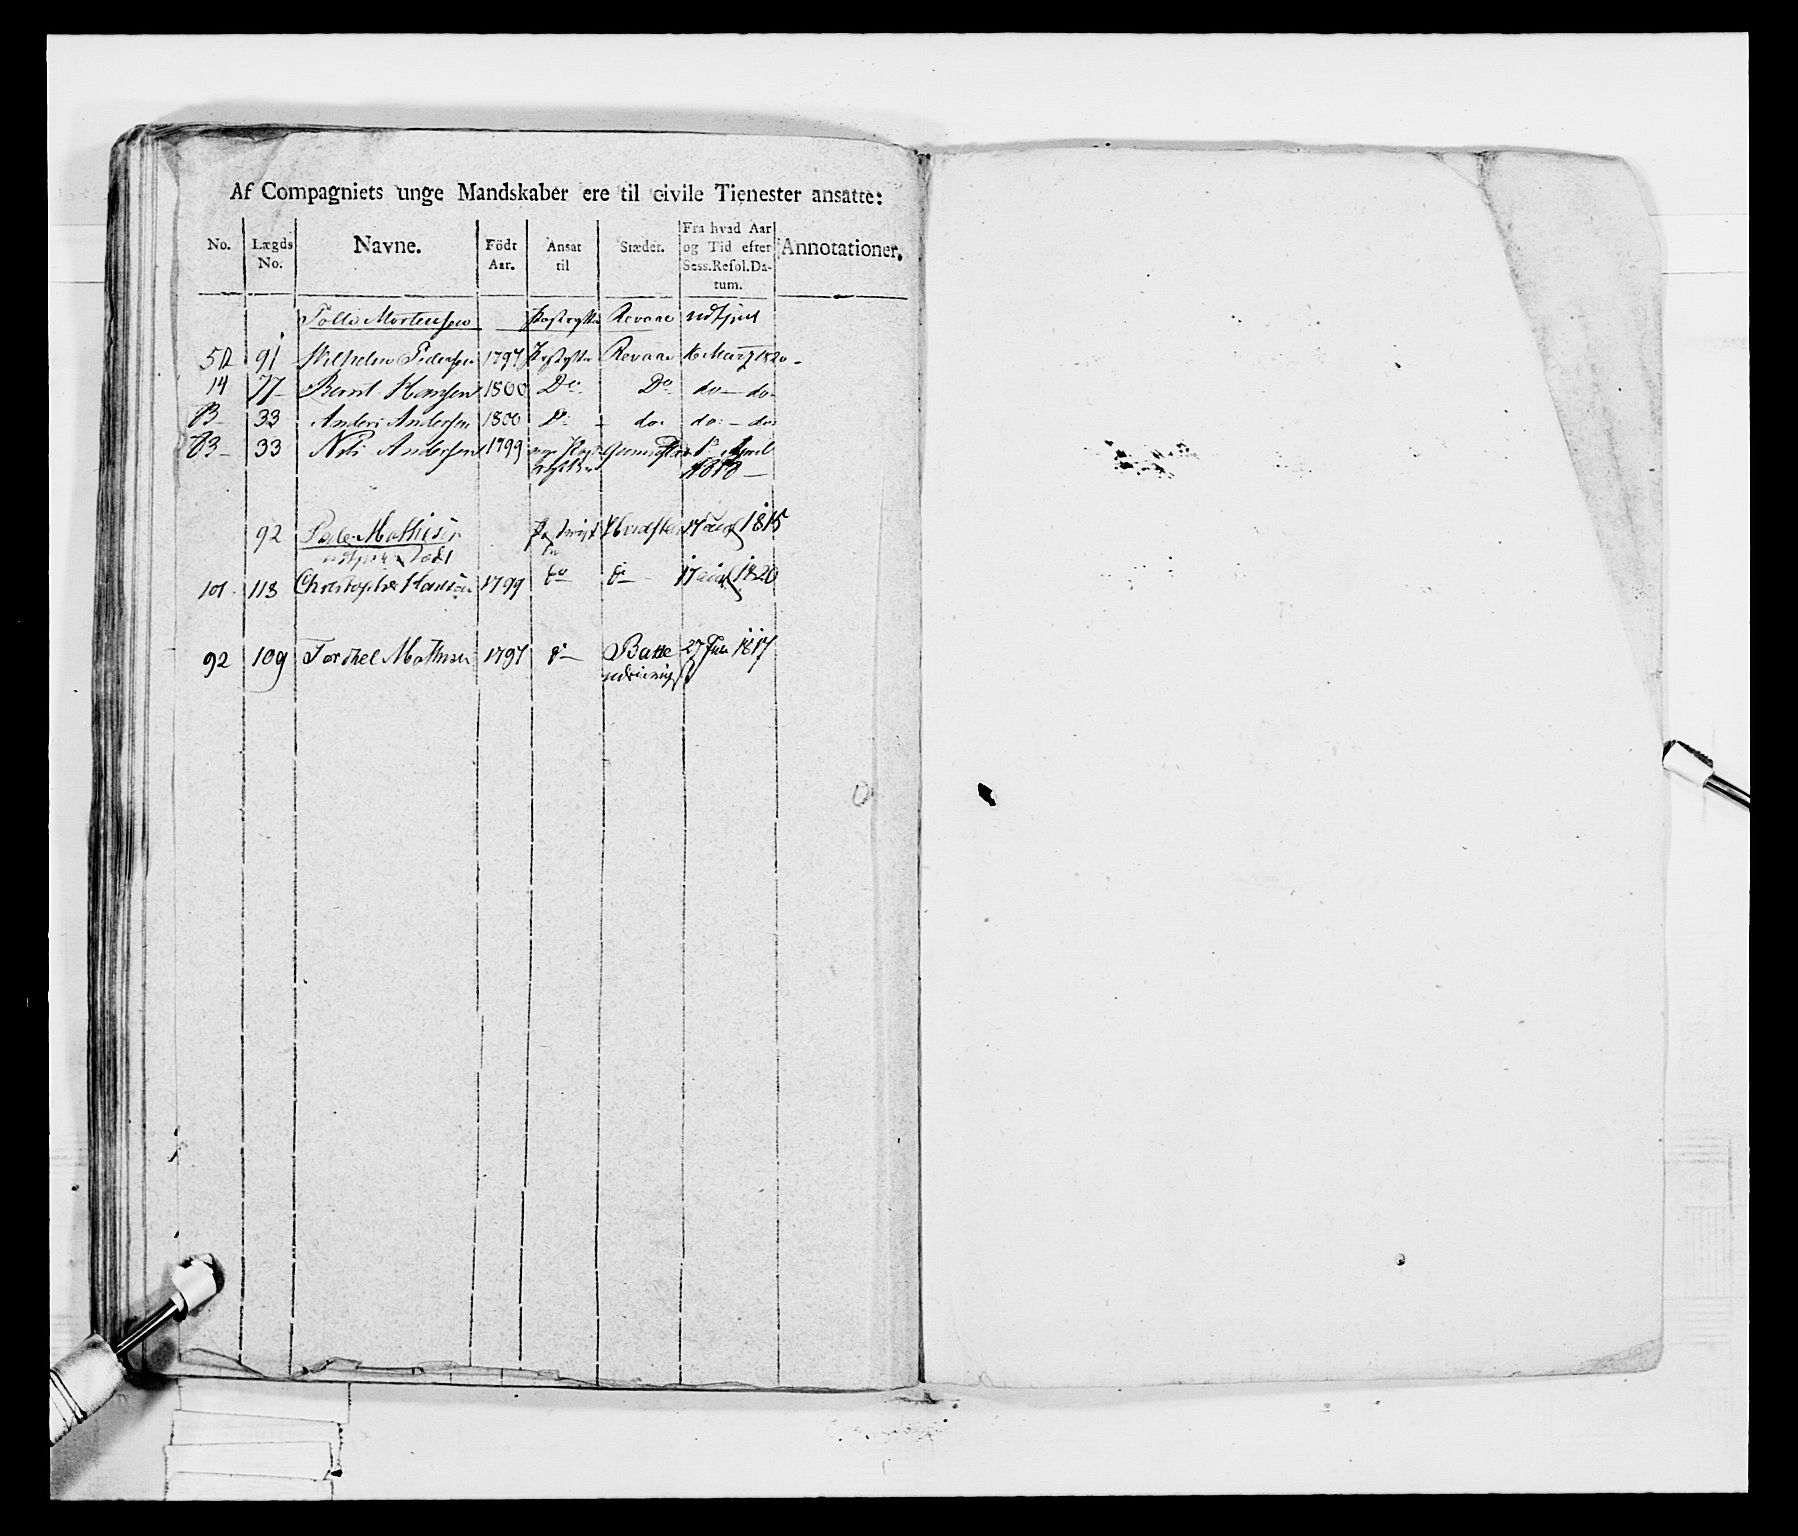 Af Compagniets unge Mandskaber ere til civile Tienester ansatte:
No. Lægds No. Navne. Födt Aar. Ansat til Stæder. Fra hvad Aar og Tid efter Sess.Resol.Datum. Annotationer.
Tolle Mortensen Revaae udtient
52 91 Wilhelm Pedersen 1797 Revaae 16 Martz 1820
14 77 Bernt Hansen 1800 Do Do do do
33 Anders Andersen 1800 Do do do do
33 Nils Andersen 1799 April
1818
92 Peder Mathisen 17 1815
101 113 Christopher Hansen 1799 do do 17 1820
92 109 Torckel Mathisen 1797 do Bakke 27 1817